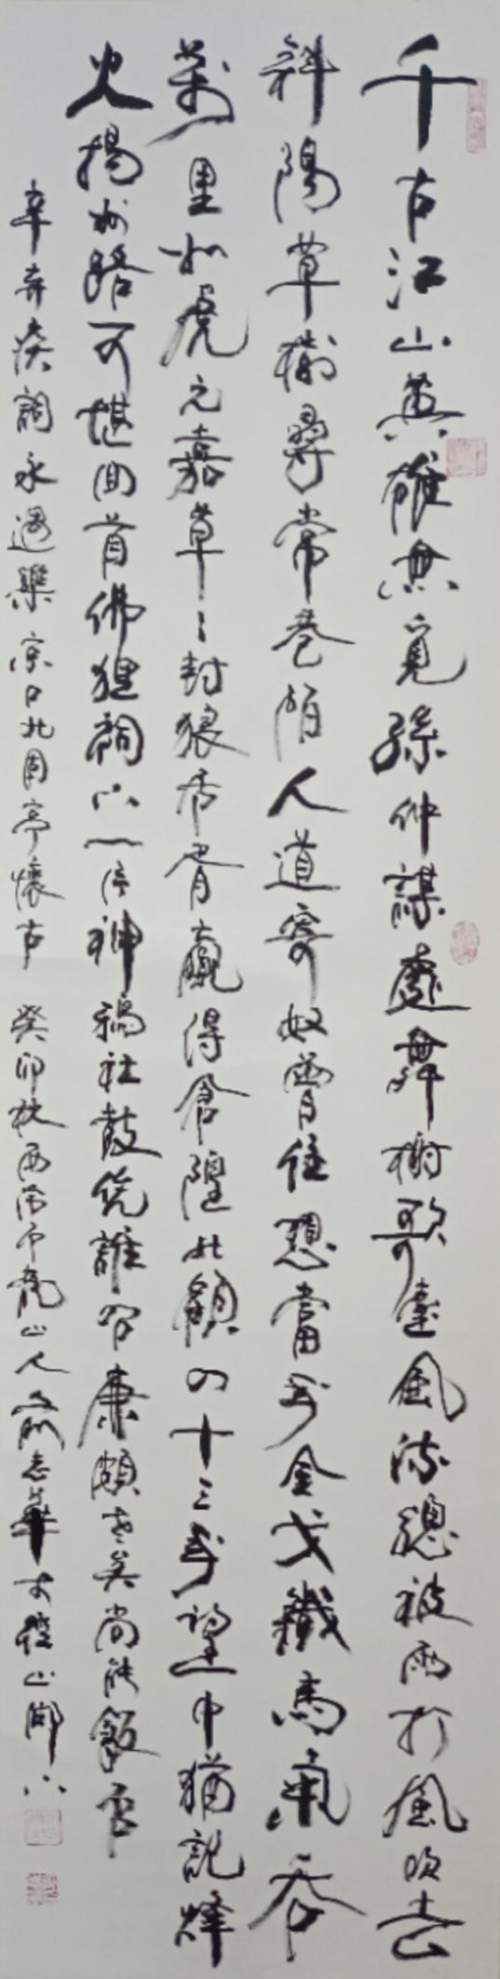 千古江山英雄無覓孫仲謀處舞榭歌臺風流總被雨打風吹去
斜陽草樹尋常巷陌人道寄奴曾住想當年金戈鐵馬氣吞
萬里如虎元嘉草〻封狼居胥贏得倉隍北顧四十三年望中猶記烽
火揚州路可堪回首佛狸祠下一片神鴉社鼓凭誰問廉頗老矣尚能飯否
辛弃疾詞永遇樂京口北固亭懷古 癸卯秋 龍山人 志華 山脚下